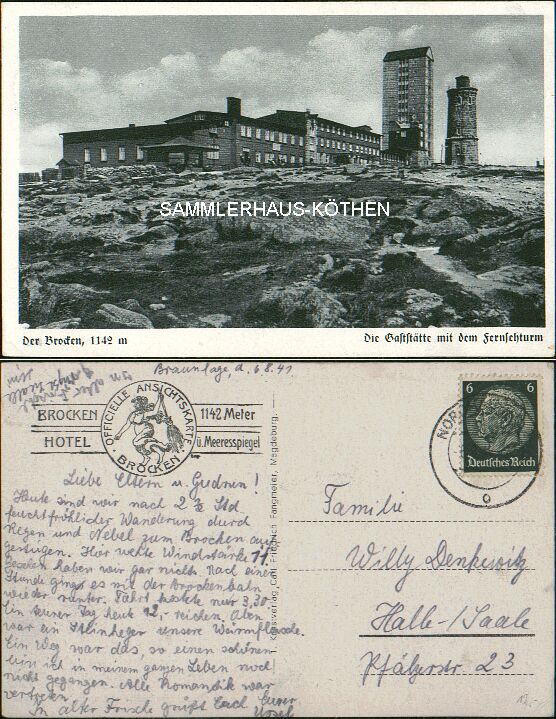 SAMMLERHAUS-KÖTHEN
Der Brocken, 1142 m
Die Gaststätte mit dem Fernsehturm
Braunlage, d. 6.8.41
BROCKEN HOTEL
OFFICIELLE ANSICHTSKARTE
BROCKEN
1142 Meter
ü. Meeresspiegel
Liebe Eltern u. Gudrun!
Heute sind wir nach 2½ Std
feuchtfröhlicher Wanderung durch
Regen und Nebel zum Brocken auf
gestiegen. Hier wehte Windstärke 11,
gesehen haben wir gar nichts. Nach einer
Stunde ging es mit der Brockenbahn
wieder runter. Fahrt kostete nur 3,30
Ein teurer Tag heute 12,- reichen. Aber
war ein Steinheger unsere Wärmflasche.
Ein Weg war das, so einen schönen
bin ich in meinem ganzen Leben noch
nicht gegangen. Alle Romantik war
vertreten.
In alter Frische grüßt Euch Eurer
Kunstverlag Carl Friedrich Fangmeier, Magdeburg.
6 6
Deutsches Reich
NOR
Familie
Willy Denkewitz
Halle/Saale
Pfälzerstr 23
12,-